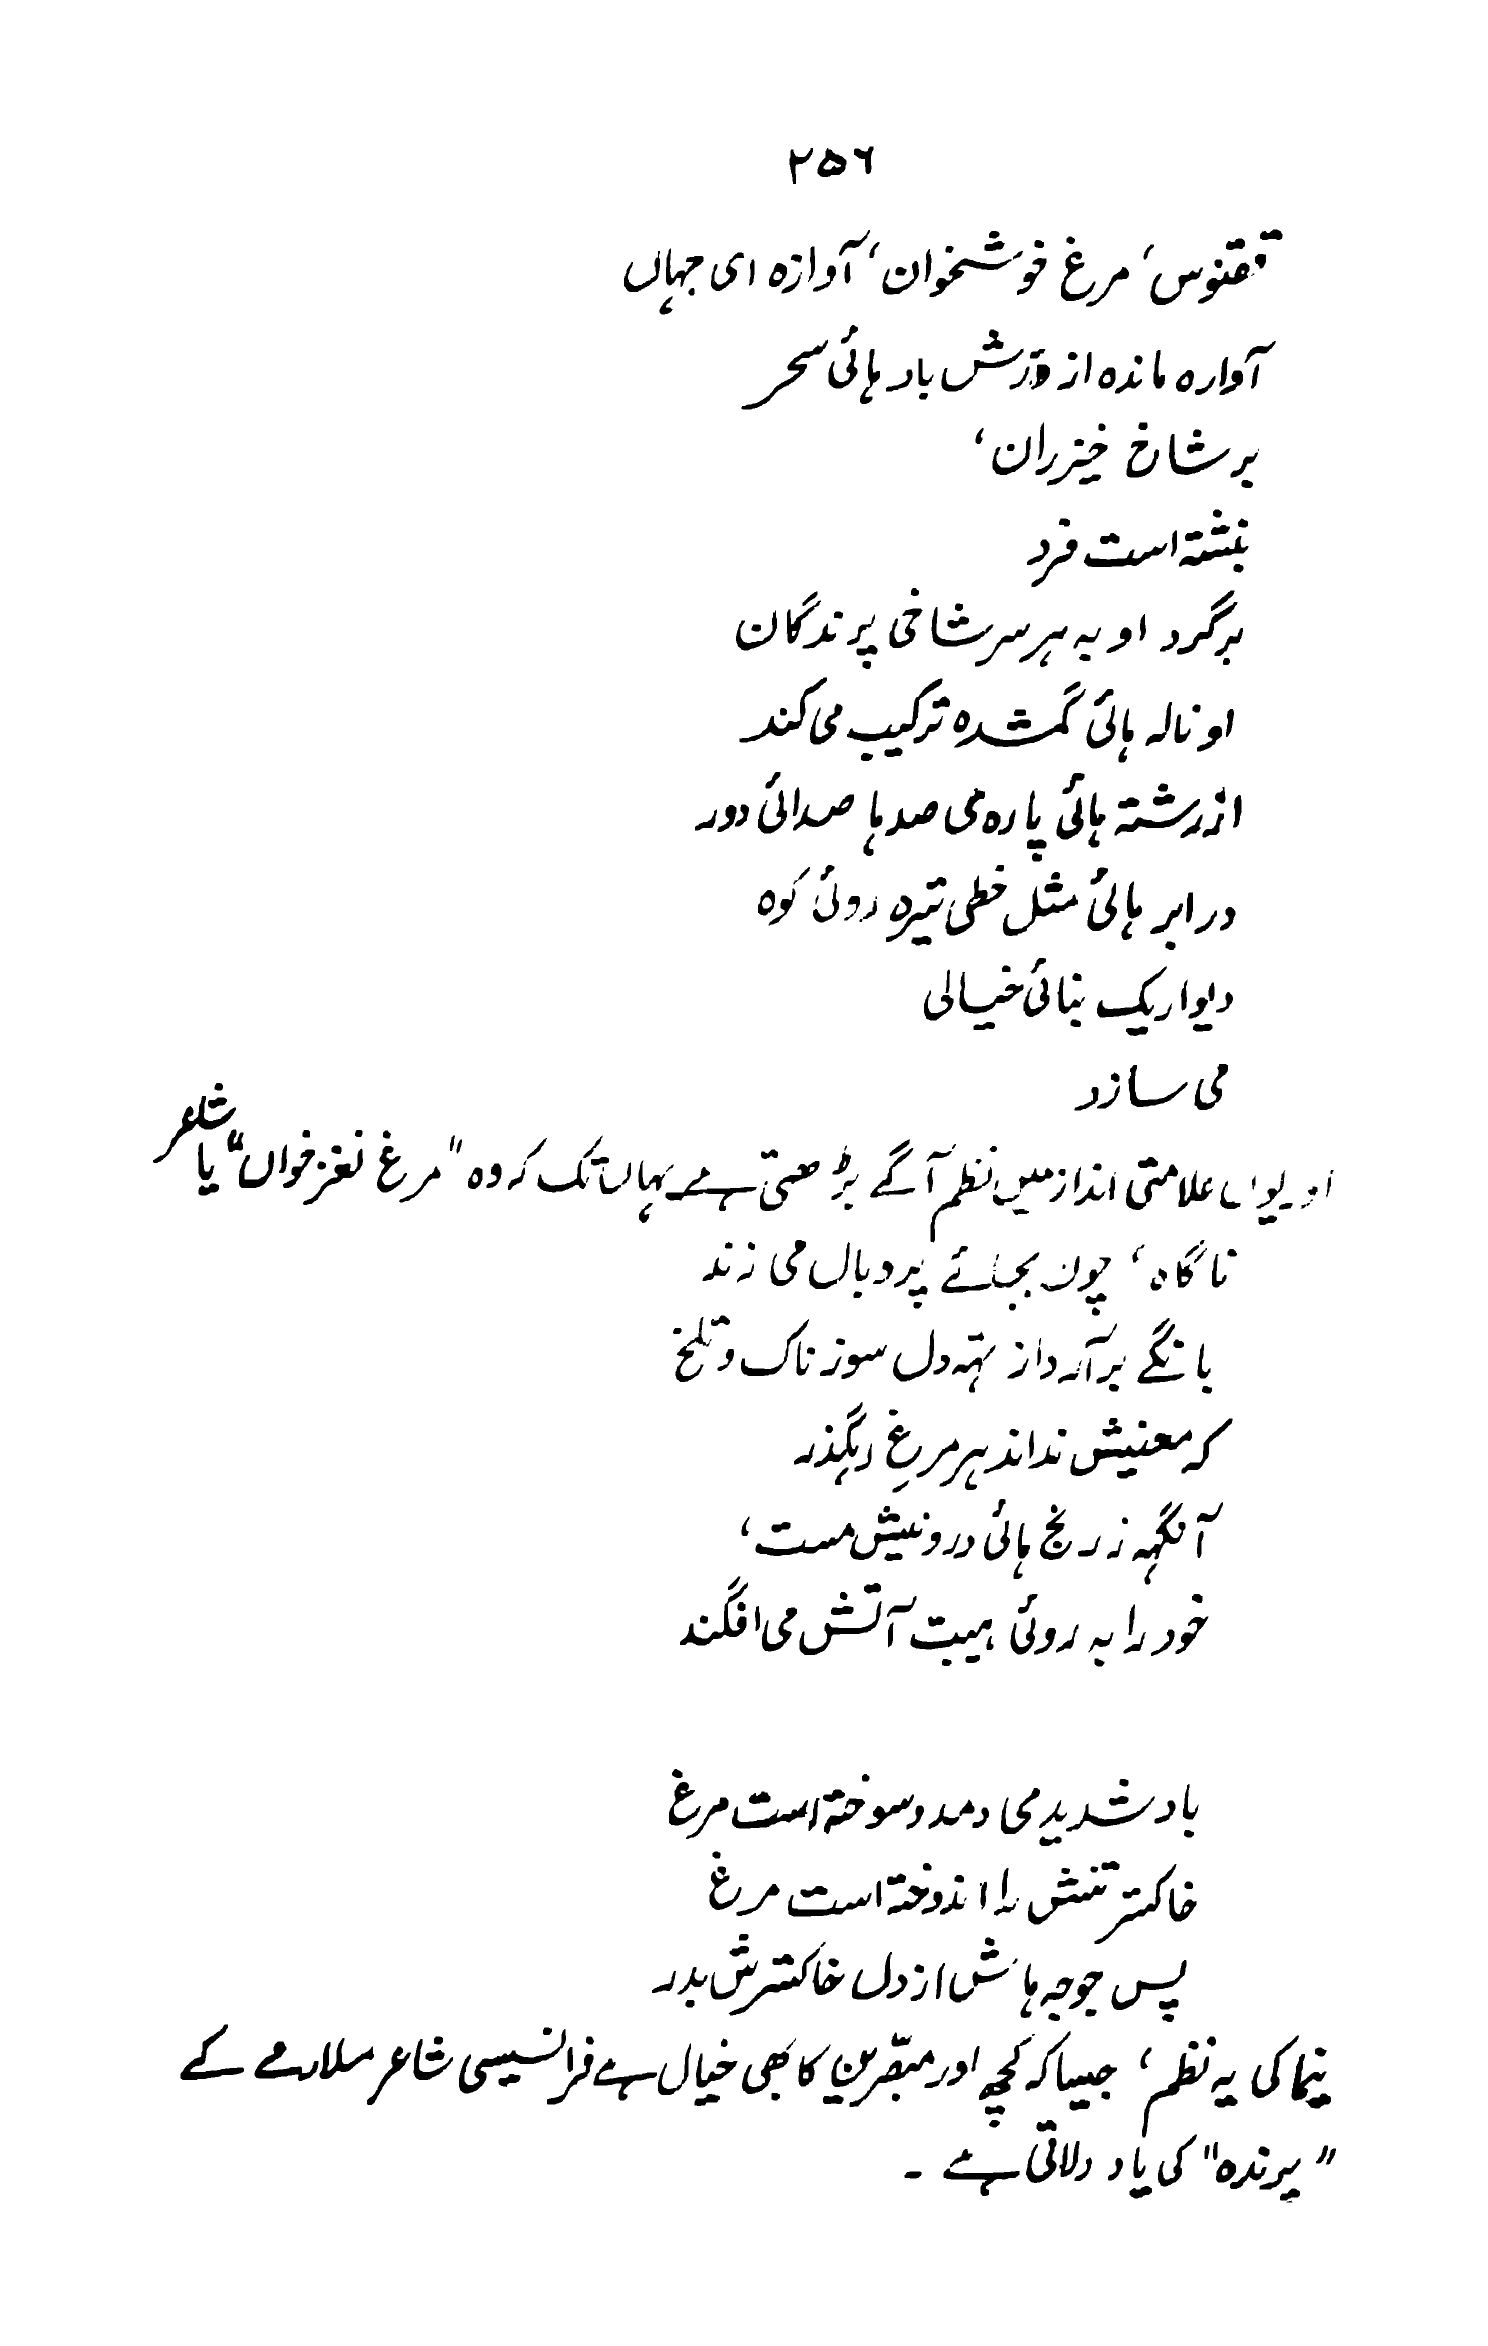 ۲۵۶
ققنوس، مرغ خوشخوان، آوازہ ای جہاں
آوارہ ماندہ از وزش باد ہائی سحر
بر شاخ خیزران،
بنشتہ است فرد
برگرد او بہ ہر سر شاخی پرندگان
او نالہ ہائی گمشدہ ترکیب می کند
از رشتہ ہائی پارہ می صدہا صدائی دور
در ابر ہائی مثل خطی تیرہ روئی کوہ
دیوار یک بنائی خیالی
می سازد
اور یوں علامتی انداز میں نظم آگے بڑھتی ہے یہاں تک کہ وہ "مرغ نغز خواں" یا شاعر
ناگاہ، چون بجائے پر و بال می زند
بانگے برآرد از تہہ دل سوزناک و تلخ
کہ معنیش نداند ہر مرغِ رہگذر
آنگہہ ز رنج ہائی درونیش مست،
خود را بہ روئی ہیبت آتش می افگند
باد شدید می دمد و سوختہ است مرغ
خاکستر تنش را اندوختہ است مرغ
پس جوجہ ہاش از دل خاکسترش بدر
نیما کی یہ نظم، جیسا کہ کچھ اور مبصّرین کا بھی خیال ہے فرانسیسی شاعر ملارمے کے
"پرندہ" کی یاد دلاتی ہے ۔